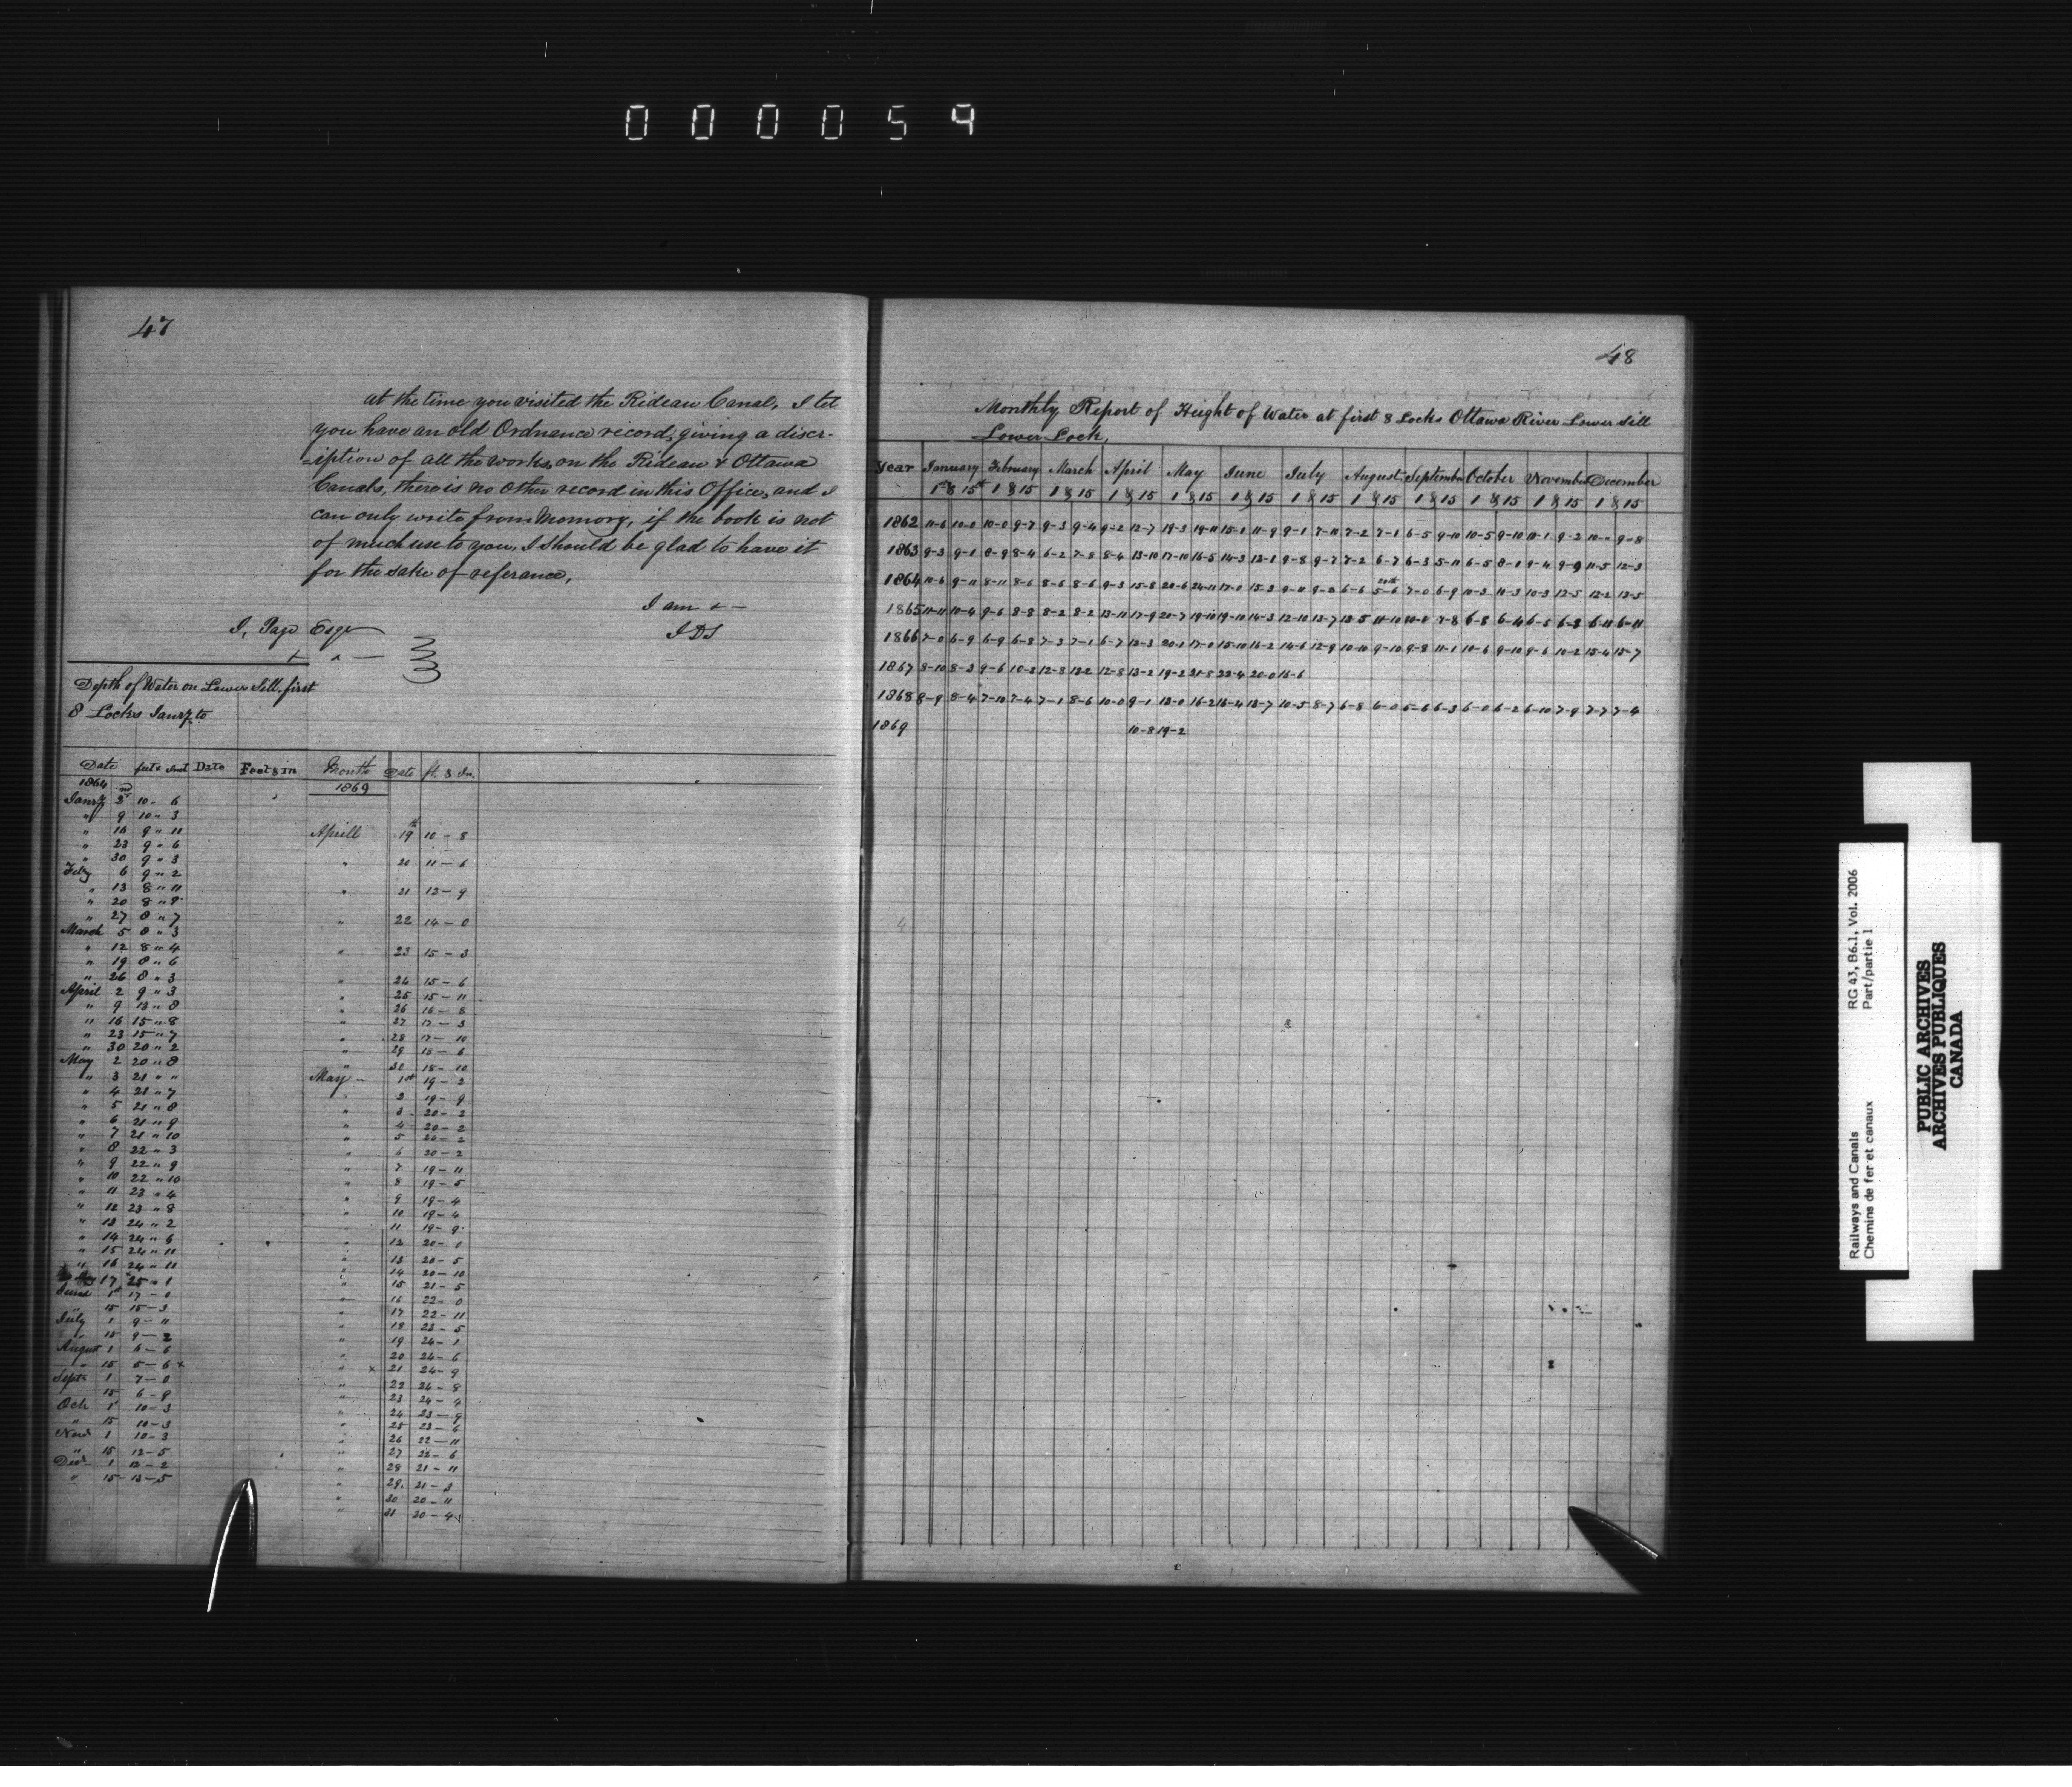 000059
47
at the time you visited the Rideau Canal, I let
you have an old Ordnance record, giving a discr-
-iption of all the works, on the Rideau & Ottawa
Canals, there is no other record in this Office, and I
can only write from Memory, if the book is not
of much use to you, I should be glad to have it
for the sake of referance,
I am &—
J, Page Esqr
Depth of Water on Lower Sill, first
8 Locks Janry to
Date Date Feet & in Month Date ft. & In.
1864 1869
Janry 2nd 10 - 6
" 9 10 " 3
" 16 9 " 11
" 23 9 " 6
" 30 9 " 3
Feby 6 9 " 2
" 13 8 " 11
" 20 8 " 8
" 27 8 " 7
March 5 8 " 3
" 12 8 " 4
" 19 8 " 6
" 26 8 " 3
April 2 9 " 3
" 9 13 " 8
" 16 15 " 8
" 23 15 " 7
" 30 20 " 2
May 2 20 " 8
" 3 21 " "
" 4 21 " 7
" 5 21 " 8
" 6 21 " 9
" 7 21 " 10
" 8 22 " 3
" 9 22 " 9
" 10 22 " 10
" 11 23 " 4
" 12 23 " 8
" 13 24 " 2
" 14 24 " 6
" 15 24 " 11
" 16 24 " 11
17 25 " 1
June 1st 17 - 0
" 15 15 - 3
July 1 9 - 11
" 15 9 - 2
August 1 6 - 6
" 15 5 - 6 x
Septr 1 7 - 0
15 6 - 9
Oct 1 10 - 3
" 15 10 - 3
Novr 1 10 - 3
" 15 12 - 5
Decr 1 12 - 2
" 15 - 13 - 5
Aprill 19th 10 - 8
" 20 11 - 6
" 21 12 - 9
" 22 14 - 0
" 23 15 - 3
" 24 15 - 6
" 25 15 - 11
" 26 16 - 8
" 27 17 - 3
" 28 17 - 10
" 29 18 - 6
" 30 18 - 10
May - 1st 19 - 2
" 2 19 - 9
" 3 20 - 2
" 4 20 - 2
" 5 20 - 2
" 6 20 - 2
" 7 19 - 11
" 8 19 - 5
" 9 19 - 4
" 10 19 - 4
" 11 19 - 9
" 12 20 - 0
" 13 20 - 5
" 14 20 - 10
" 15 21 - 5
" 16 22 - 0
" 17 22 - 11
" 18 23 - 5
" 19 24 - 1
" 20 24 - 6
" x 21 24 - 9
" 22 24 - 8
" 23 24 - 4
" 24 23 - 9
" 25 23 - 6
" 26 22 - 11
" 27 22 - 6
" 28 21 - 11
" 29 21 - 3
" 30 20 - 11
" 31 20 - 4
48
Monthly Report of Height of Water at first 8 Locks Ottawa River Lower Sill
Lower Lock,
Year January February March April May June July August September October November December
1st & 15th 1 & 15 1 & 15 1 & 15 1 & 15 1 & 15 1 & 15 1 & 15 1 & 15 1 & 15 1 & 15 1 & 15
1862 11-6 10-0 10-0 9-7 9-3 9-4 9-2 12-7 19-3 19-11 15-1 11-9 9-1 7-11 7-2 7-1 6-5 9-10 10-5 9-10 10-1 9-2 10-11 9-8
1863 9-3 9-1 8-9 8-4 6-2 7-8 8-4 13-10 17-10 16-5 14-3 12-1 9-8 9-7 7-2 6-7 6-3 5-11 6-5 8-1 9-4 9-9 11-5 12-3
1864 11-6 9-11 8-11 8-6 8-6 8-6 9-3 15-8 20-6 24-11 17-0 15-3 9-11 9-2 6-6 5-6 7-0 6-9 10-3 11-3 10-3 12-5 12-2 13-5
1865 11-11 10-4 9-6 8-8 8-2 8-2 13-11 17-9 20-7 19-11 19-11 14-3 12-10 13-7 13-5 11-10 10-0 7-8 6-8 6-4 6-5 6-8 6-11 6-11
1866 7-0 6-9 6-9 6-8 7-3 7-1 6-7 13-3 20-1 17-0 15-10 16-2 14-6 12-9 10-10 9-10 9-8 11-1 10-6 9-10 9-6 10-2 15-4 15-7
1867 8-10 8-3 9-6 10-2 12-8 13-2 12-8 13-2 19-2 21-8 22-4 20-0 16-6
1868 8-9 8-4 7-10 7-4 7-1 8-6 10-0 9-1 13-0 16-2 16-4 13-7 10-5 8-7 6-8 6-0 5-6 6-3 6-0 6-2 6-10 7-9 7-7 7-4
1869 10-8 19-2
Railways and Canals
Chemins de fer et canaux
RG 43, B6.1, Vol. 2006
Part/partie 1
PUBLIC ARCHIVES
ARCHIVES PUBLIQUES
CANADA